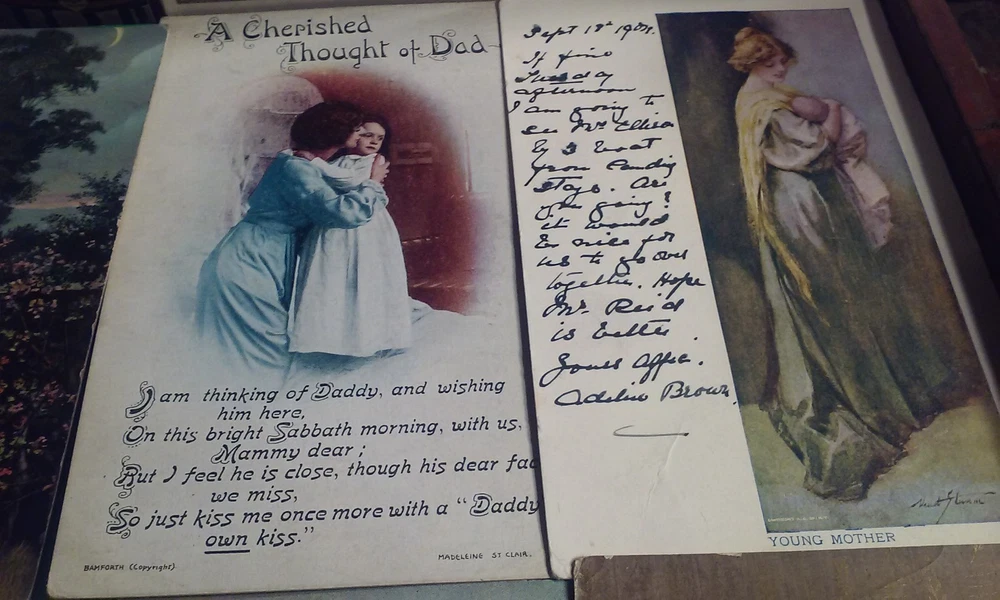 A Cherished
Thought of Dad
I am thinking of Daddy, and wishing
him here,
On this bright Sabbath morning, with us,
Mammy dear;
But I feel he is close, though his dear fac
we miss,
So just kiss me once more with a "Daddy
own kiss."
MADELEINE ST CLAIR.
BAMFORTH (Copyright).
Sept 18th
If fine
Tuesday
afternoon
I am going to
see Mrs Ellison
by 3 boat
from Landing
Stage. Are
you going?
it would
be nice for
us to go over
together. Hope
Mr. Reid
is better.
Yours affec.
Adeline Brown.
YOUNG MOTHER